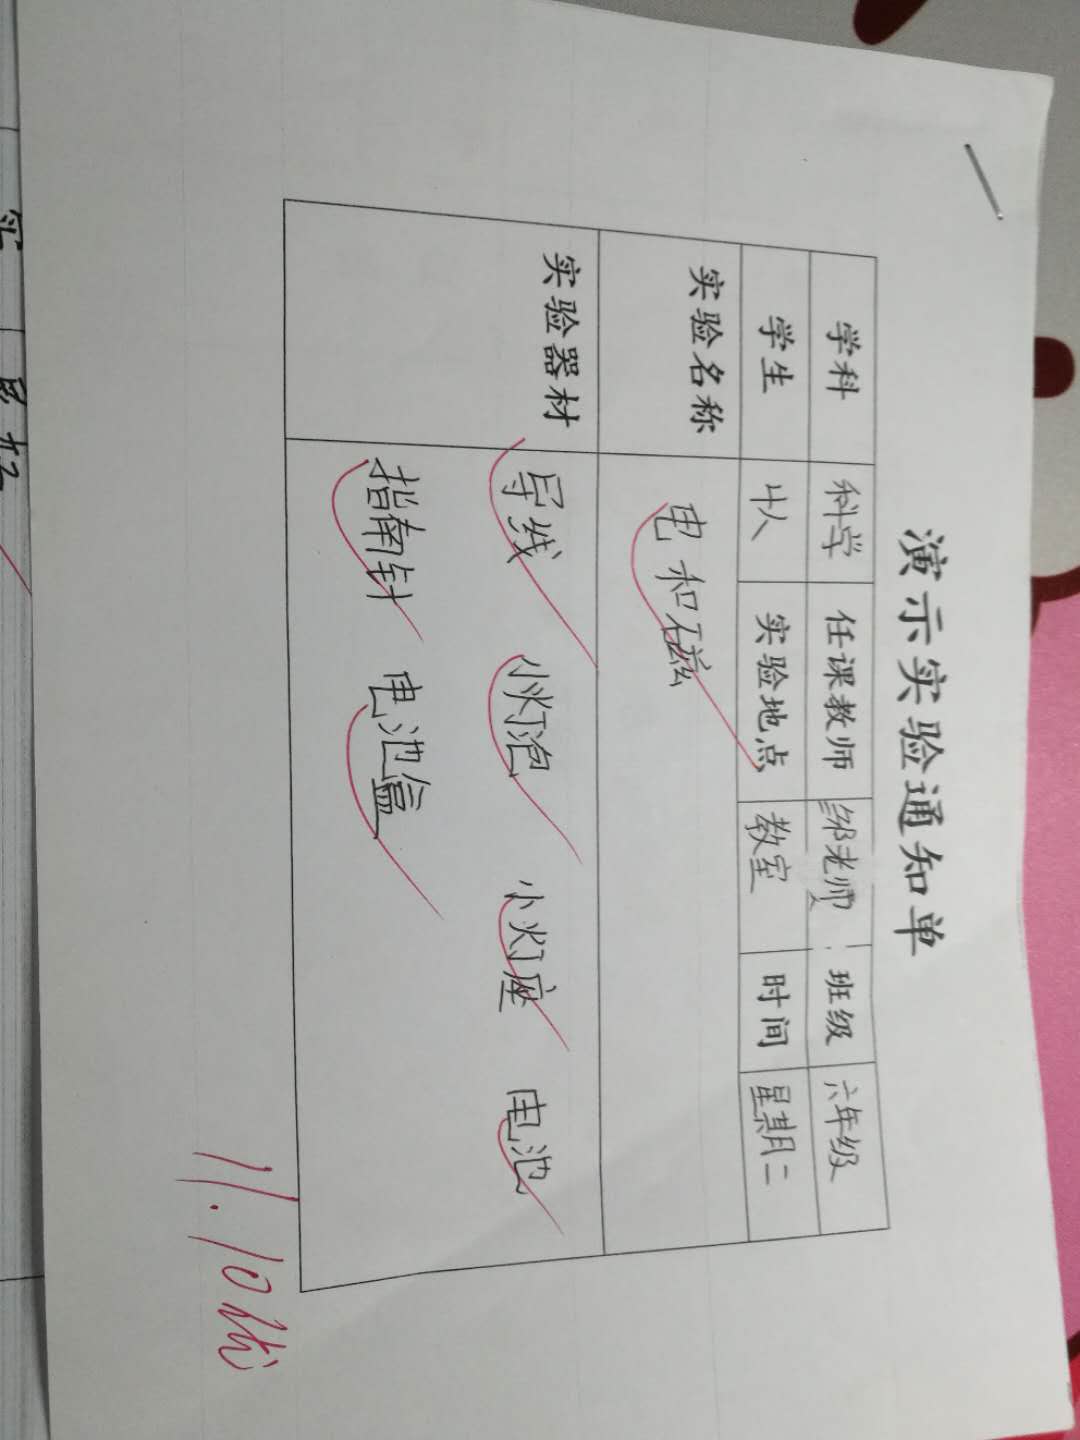 演示实验通知单
学科 科学 任课教师 邹老师 班级 六年级
学生 实验地点 教室 时间 星期二
实验名称 电和磁
实验器材 导线 小灯泡 小灯座 电池
指南针 电池盒
11.10优